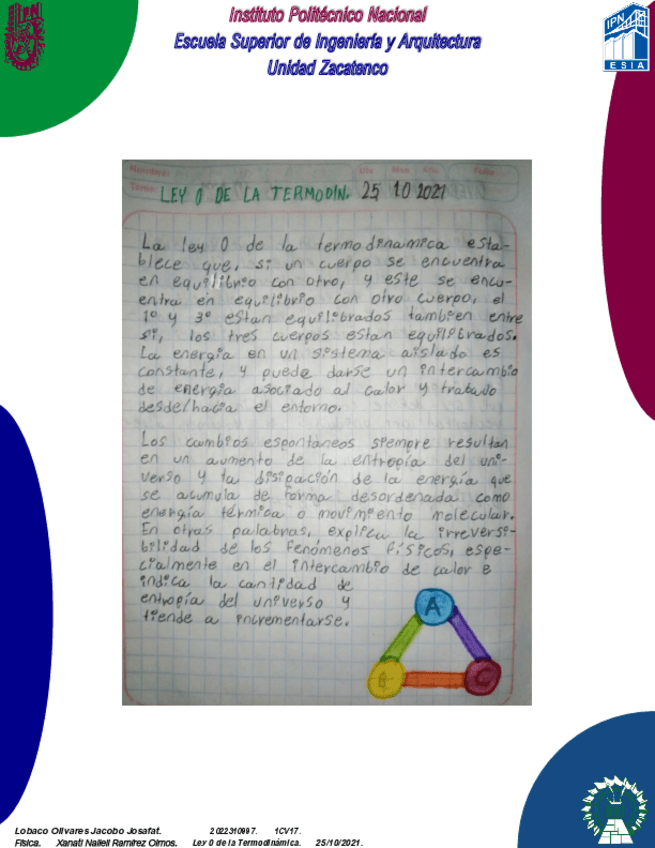 Instituto Politécnico Nacional
Escuela Superior de Ingeniería y Arquitectura
Unidad Zacatenco
IPN
ESIA
Nombre:
Día Mes Año Folio
Tema: LEY 0 DE LA TERMODIN. 25 10 2021
La ley 0 de la termodinamica esta-
blece que, si un cuerpo se encuentra
en equilibrio con otro, y este se encu-
entra en equilibrio con otro cuerpo, el
1° y 3° estan equilibrados tambien entre
si, los tres cuerpos estan equilibrados.
La energía en un sistema aislado es
constante, y puede darse un intercambio
de energía asociado al calor y trabajo
desde/hacia el entorno.
Los cambios espontaneos siempre resultan
en un aumento de la entropía del uni-
verso y la disipación de la energía que
se acumula de forma desordenada como
energía térmica o movimiento molecular.
En otras palabras, explica la irreversi-
bilidad de los fenómenos físicos, espe-
cialmente en el intercambio de calor e
indica la cantidad de
entropía del universo y
tiende a incrementarse.
A
B C
Lobaco Olivares Jacobo Josafat. 2022310997. 1CV17.
Física. Xanati Nallell Ramírez Olmos. Ley 0 de la Termodinámica. 25/10/2021.